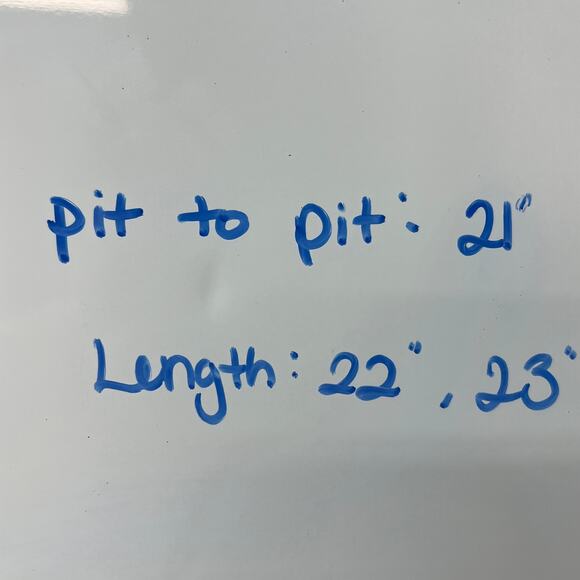 pit to pit: 21"
Length: 22", 23"